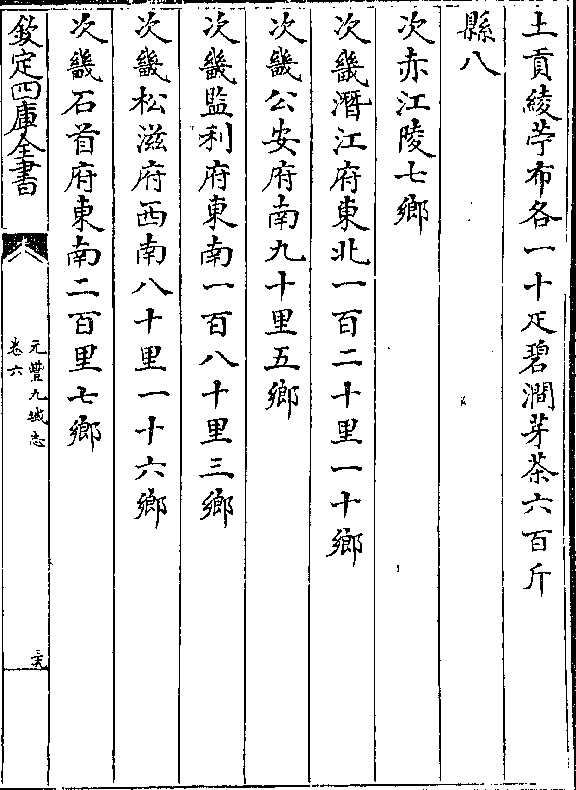 土貢綾苧布各一十疋碧澗芽茶六百斤
縣八
次赤江陵七鄉
次畿潛江府東北一百二十里一十鄉
次畿公安府南九十里五鄉
次畿監利府東南一百八十里三鄉
次畿松滋府西南八十里一十六鄉
次畿石首府東南二百里七鄉
欽定四庫全書
元豐九域志
卷六